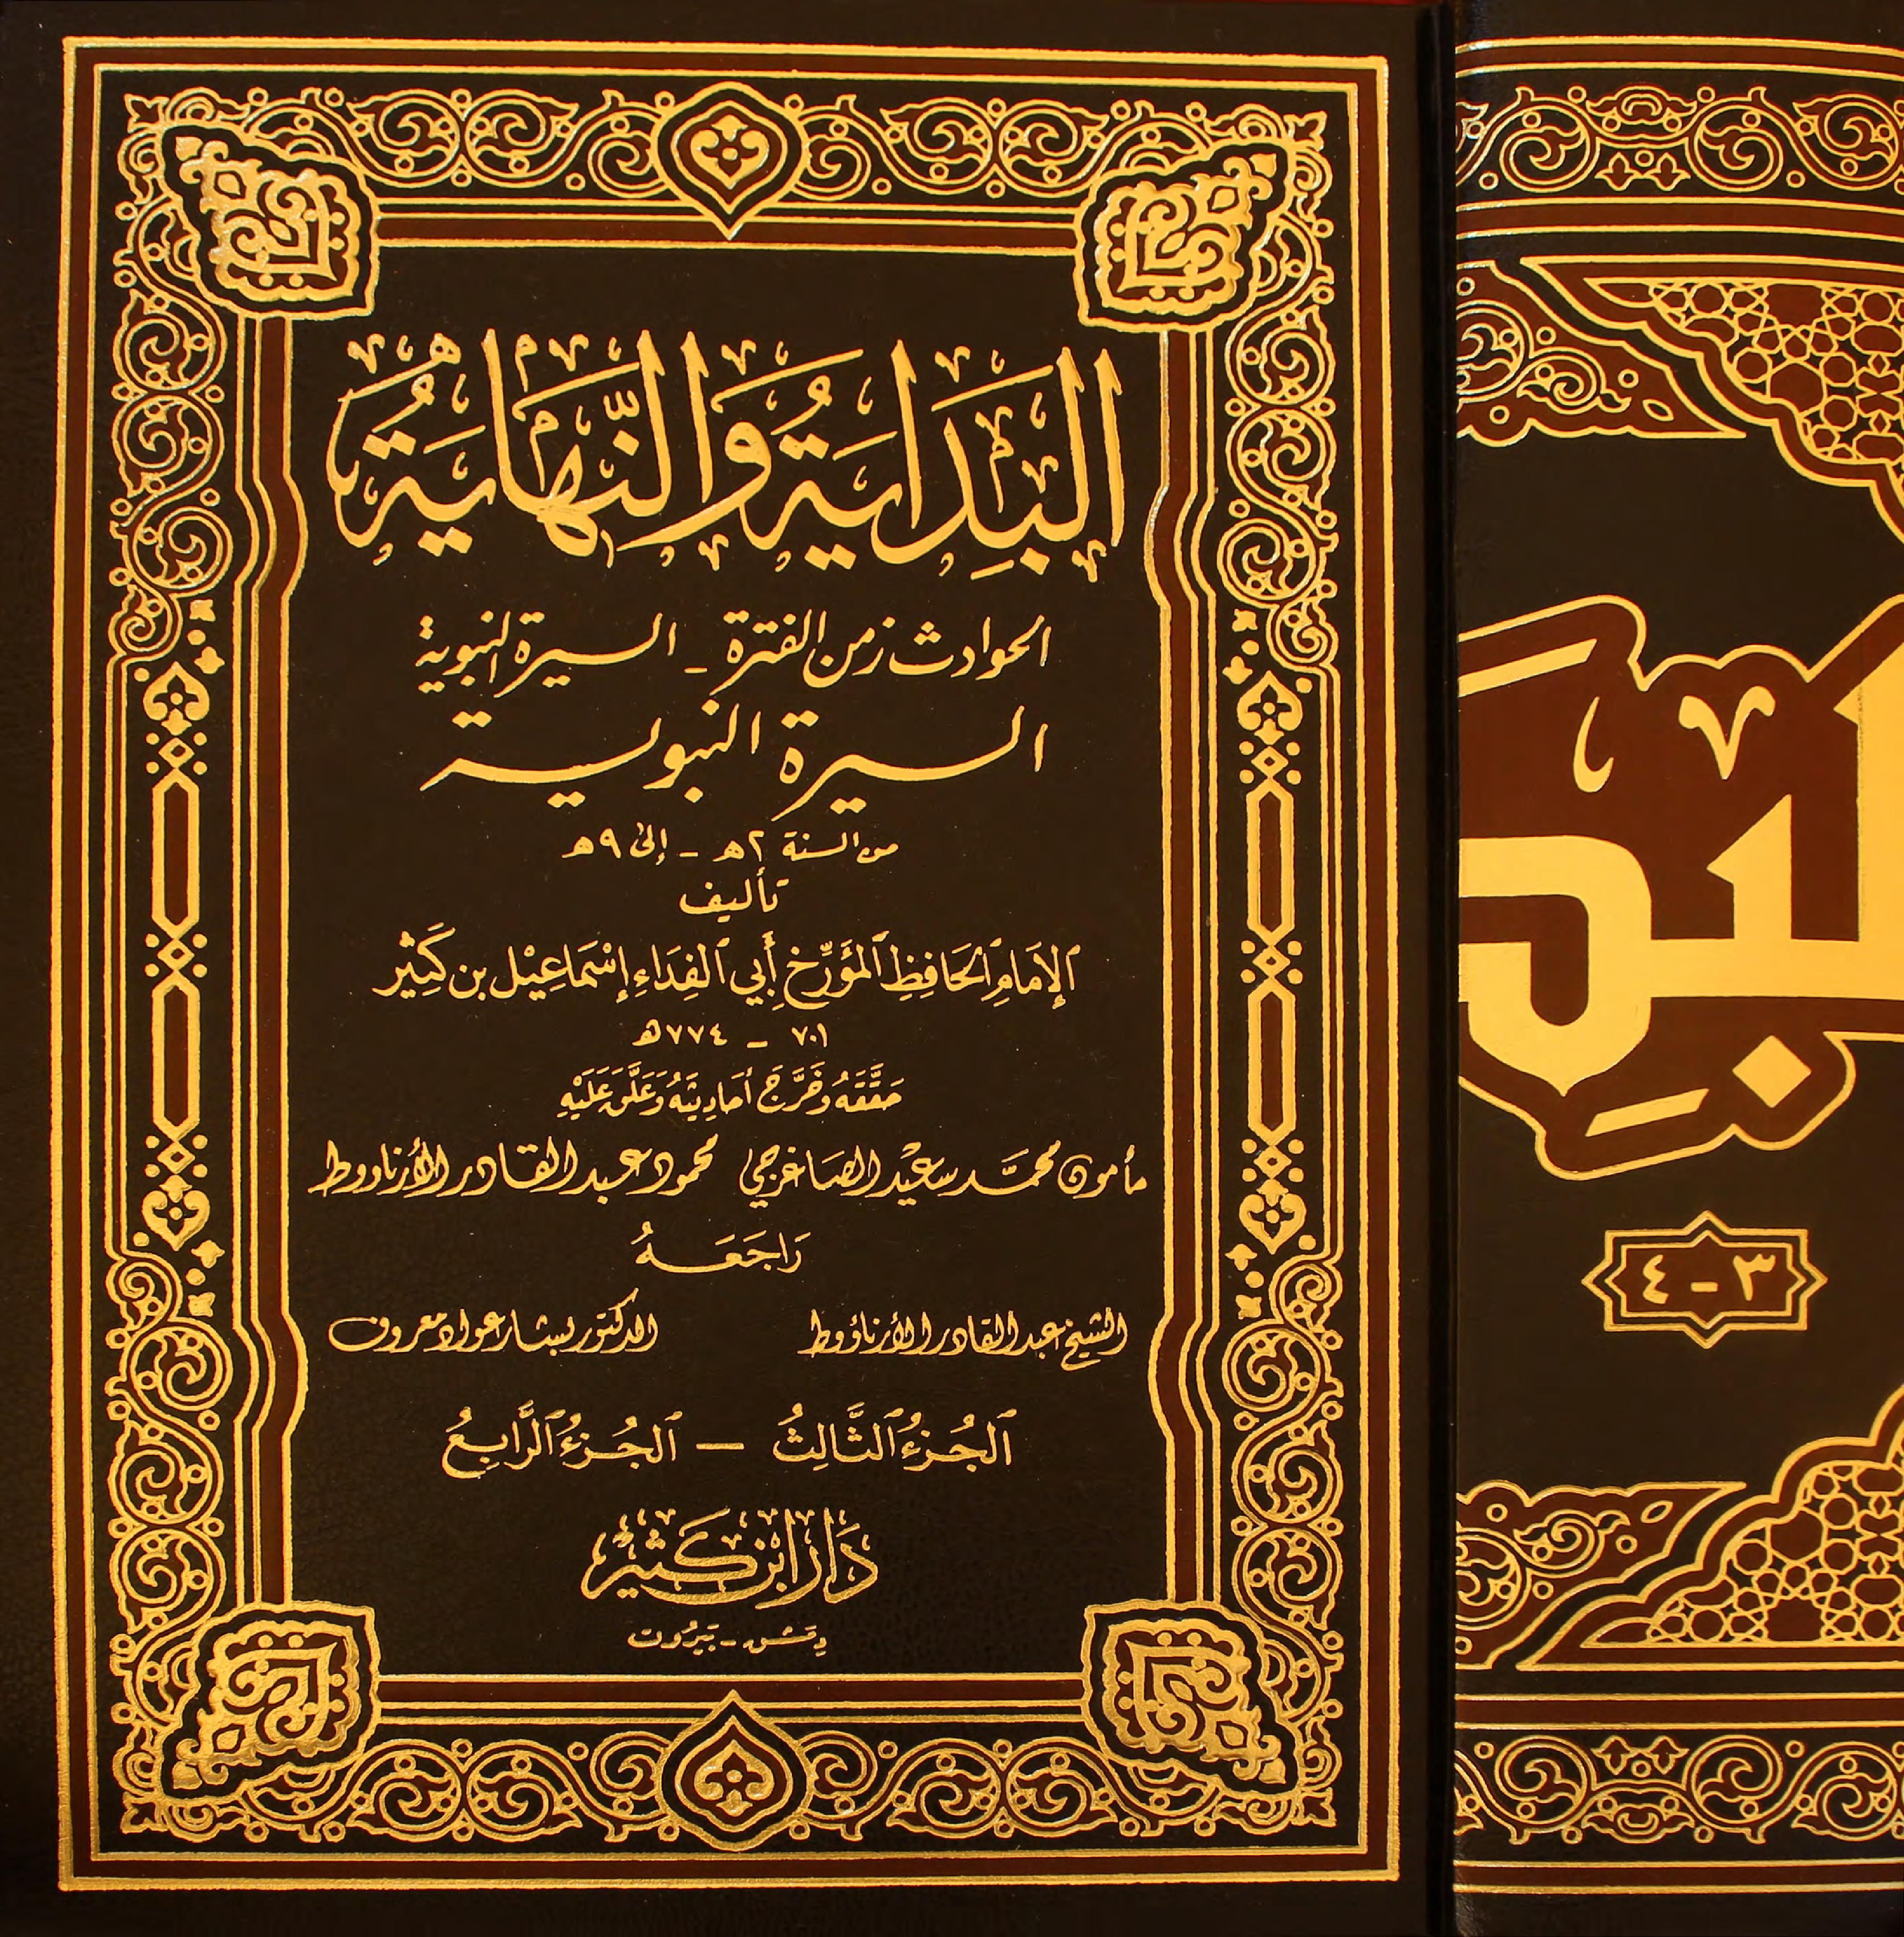 البِدَايَةُ وَالنِّهَايَةُ
الحوادث زمن الفترة - السيرة النبوية
السيرة النبوية
من السنة ٢هـ - إلى ٩هـ
تأليف
الإمَامِ الحَافِظِ المُؤَرِّخِ أَبِي الفِدَاءِ إِسْمَاعِيْل بن كَثِيْر
٧٠١ - ٧٧٤هـ
حَقَّقَهُ وَخَرَّجَ أحَادِيثَهُ وَعَلَّقَ عَلَيْهِ
مأمون محمَّد سعيْد الصَاغرجي محمود عبد القادر الأرناووط
رَاجَعَهُ
الشيخ عبد القادر الأرناؤوط الدكتور بشار عواد معروف
الجُزءُ الثَّالِثُ — الجُزءُ الرَّابِعُ
دَار ابْن كَثِيْر
دِمَشق - بَيْرُوت
٣ - ٤